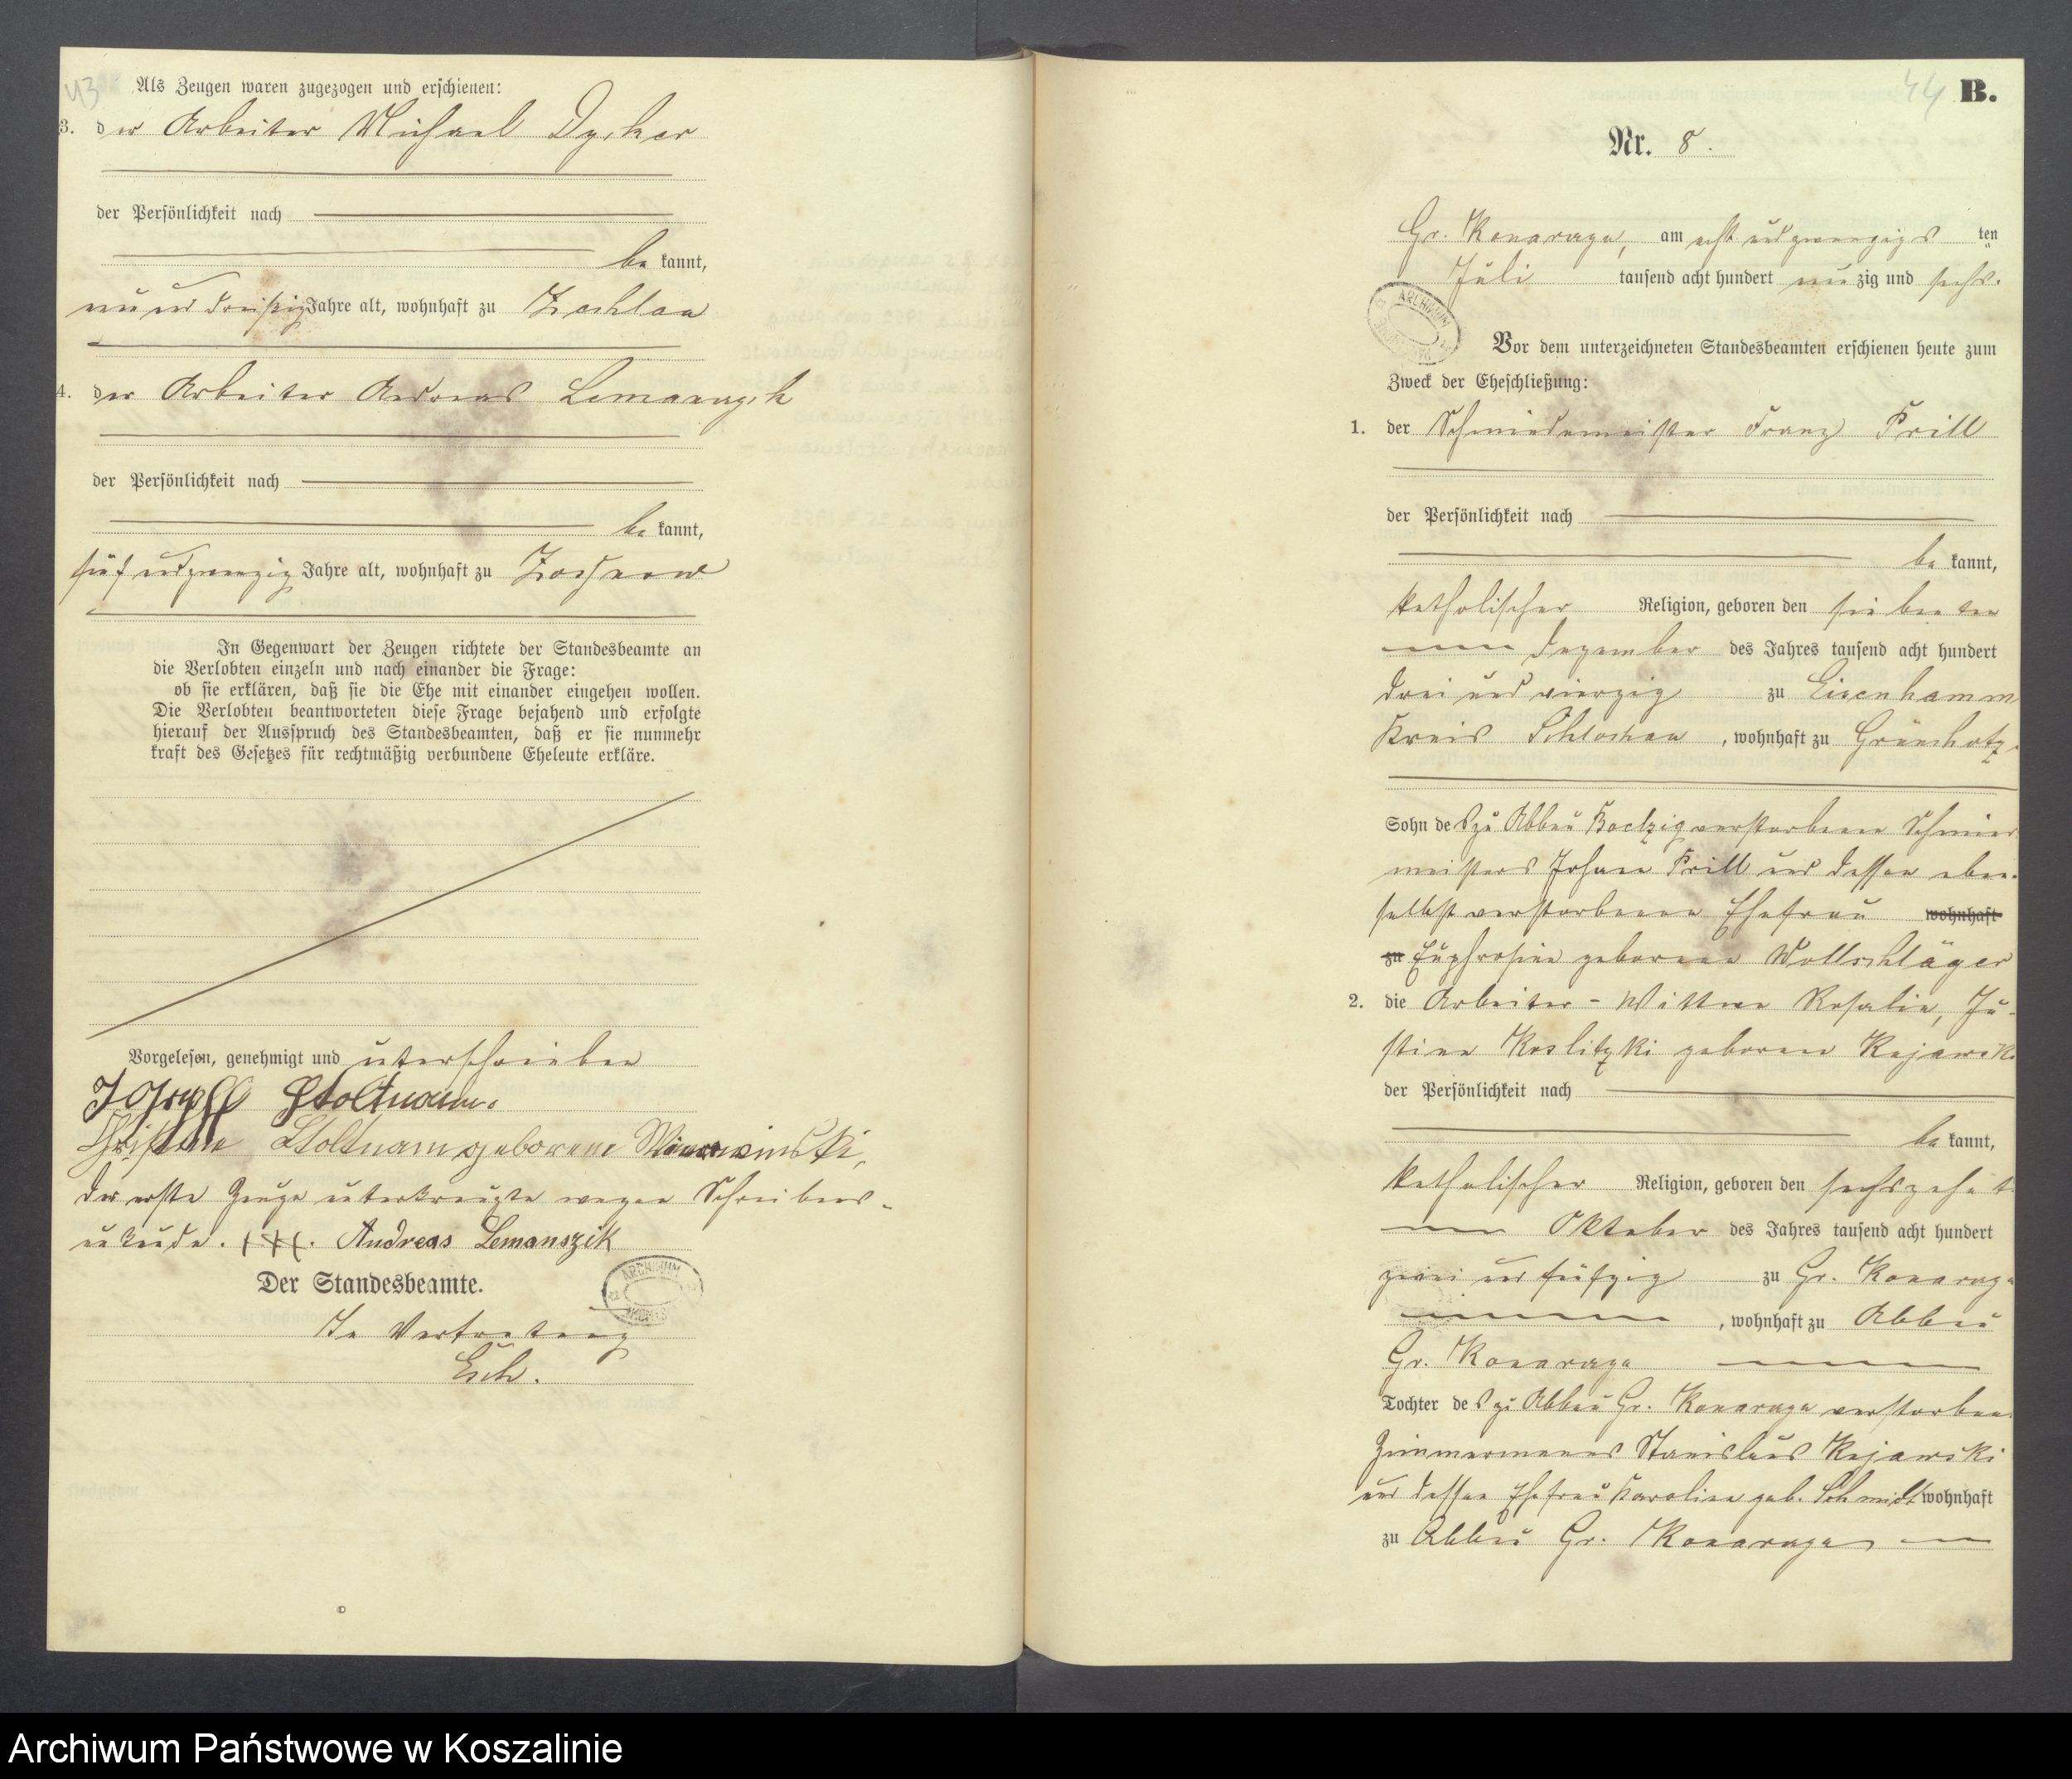 43
Als Zeugen waren zugezogen und erschienen:
3. der Arbeiter Michael
der Persönlichkeit nach
be kannt,
neun und dreißig Jahre alt, wohnhaft zu Zechlau
4. der Arbeiter Andreas Lemanczik
der Persönlichkeit nach
be kannt,
fünf und zwanzig Jahre alt, wohnhaft zu
In Gegenwart der Zeugen richtete der Standesbeamte an
die Verlobten einzeln und nach einander die Frage:
ob sie erklären, daß sie die Ehe mit einander eingehen wollen.
Die Verlobten beantworteten diese Frage bejahend und erfolgte
hierauf der Ausspruch des Standesbeamten, daß er sie nunmehr
kraft des Gesetzes für rechtmäßig verbundene Eheleute erkläre.
Vorgelesen, genehmigt und unterschrieben
Joseph Stoltmann.
Christine Stoltmann geborene
der erste Zeuge unterkreuzte wegen Schreibens-
unkunde. +++. Andreas Lemanszik
Der Standesbeamte.
ARCHIWUM
In Vertretung
Esch.
44 B.
Nr. 8.
Gr. Konarzyn, am acht und zwanzigs ten
Juli tausend acht hundert neun zig und sechs.
ARCHIWUM
Vor dem unterzeichneten Standesbeamten erschienen heute zum
Zweck der Eheschließung:
1. der Schmiedemeister Franz Prill
der Persönlichkeit nach
be kannt,
katholischer Religion, geboren den siebenten
Dezember des Jahres tausend acht hundert
drei und vierzig zu Eisenhamm
Kreis Schlochau, wohnhaft zu Grünhotz
Sohn des zu Abbau verstorbenen Schmiede
meisters Johann Prill und dessen eben
selbst verstorbenen Ehefrau wohnhaft
zu Euphrosine geborene Wollschläger
2. die Arbeiter-Wittwe Rosalie, Ju-
stine Koslitzki geborene Kujawski
der Persönlichkeit nach
be kannt,
katholischer Religion, geboren den sechszehnt
Oktober des Jahres tausend acht hundert
zwei und fünfzig zu Gr. Konarzyn
, wohnhaft zu Abbau
Gr. Konarzyn
Tochter des zu Abbau Gr. Konarzyn verstorbenen
Zimmermanns Stanislaus Kujawski
und dessen Ehefrau Karoline geb. Schmidt wohnhaft
zu Abbau Gr. Konarzyn
Archiwum Państwowe w Koszalinie